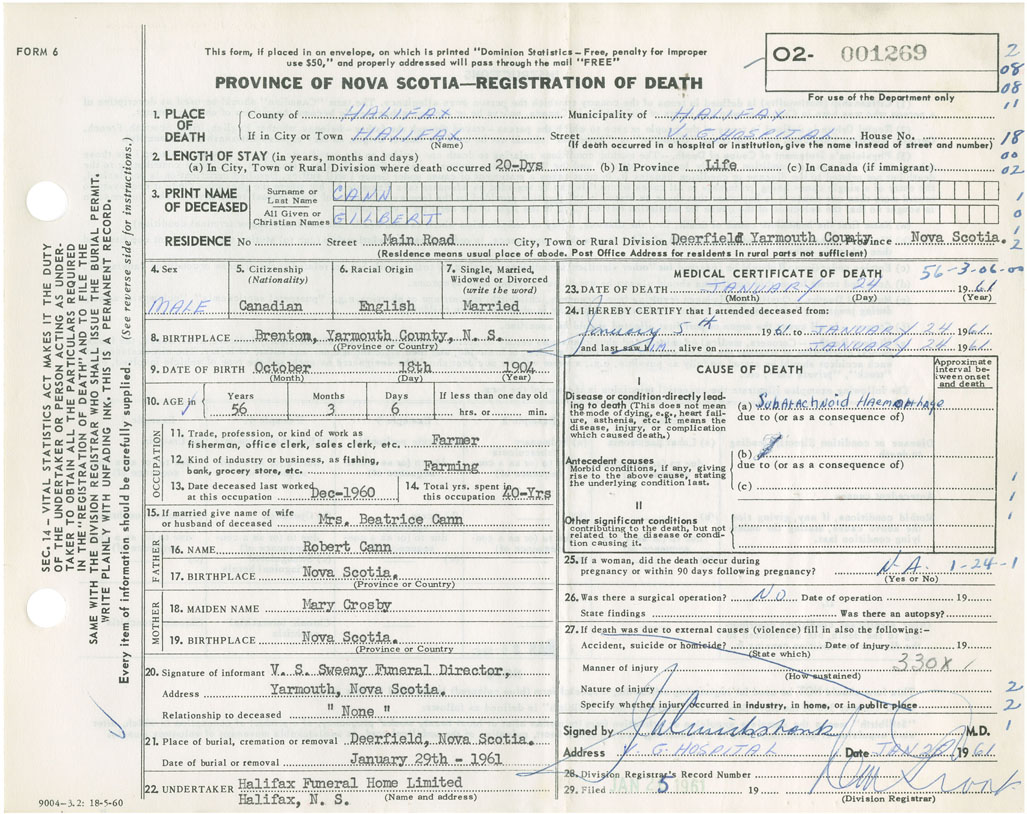 FORM 6
This form, if placed in an envelope, on which is printed "Dominion Statistics – Free, penalty for improper
use $50," and properly addressed will pass through the mail "FREE"
PROVINCE OF NOVA SCOTIA—REGISTRATION OF DEATH
02- 001269
For use of the Department only
2
08
08
11
18
00
02
1
0
1
2
SEC. 14 – VITAL STATISTICS ACT MAKES IT THE DUTY
OF THE UNDERTAKER OR PERSON ACTING AS UNDER-
TAKER TO OBTAIN ALL THE PARTICULARS REQUIRED
IN THE "REGISTRATION OF DEATH" AND TO FILE THE
SAME WITH THE DIVISION REGISTRAR WHO SHALL ISSUE THE BURIAL PERMIT.
WRITE PLAINLY WITH UNFADING INK. THIS IS A PERMANENT RECORD.
Every item of information should be carefully supplied. (See reverse side for instructions.)
1. PLACE OF DEATH
County of HALIFAX Municipality of HALIFAX
If in City or Town HALIFAX Street V. G HOSPITAL House No.
(Name) (If death occurred in a hospital or institution, give the name instead of street and number)
2. LENGTH OF STAY (in years, months and days)
(a) In City, Town or Rural Division where death occurred 20-Dys (b) In Province Life (c) In Canada (if immigrant)
3. PRINT NAME OF DECEASED
Surname or Last Name CANN
All Given or Christian Names GILBERT
RESIDENCE No Street Main Road City, Town or Rural Division Deerfield Yarmouth County Province Nova Scotia.
(Residence means usual place of abode. Post Office Address for residents in rural parts not sufficient)
4. Sex
MALE
5. Citizenship
(Nationality)
Canadian
6. Racial Origin
English
7. Single, Married,
Widowed or Divorced
(write the word)
Married
8. BIRTHPLACE Brenton, Yarmouth County, N. S.
((Province or Country)
9. DATE OF BIRTH October 18th 1904
(Month) (Day) (Year)
10. AGE in
Years Months Days If less than one day old
56 3 6 hrs. or min.
OCCUPATION
11. Trade, profession, or kind of work as
fisherman, office clerk, sales clerk, etc. Farmer
12. Kind of industry or business, as fishing,
bank, grocery store, etc. Farming
13. Date deceased last worked
at this occupation Dec-1960
14. Total yrs. spent in
this occupation 40-Yrs
15. If married give name of wife
or husband of deceased Mrs. Beatrice Cann
FATHER
16. NAME Robert Cann
17. BIRTHPLACE Nova Scotia.
(Province or Country)
MOTHER
18. MAIDEN NAME Mary Crosby
19. BIRTHPLACE Nova Scotia.
(Province or Country)
20. Signature of informant V. S. Sweeny Funeral Director,
Address Yarmouth, Nova Scotia.
Relationship to deceased " None "
21. Place of burial, cremation or removal Deerfield, Nova Scotia.
Date of burial or removal January 29th - 1961
22. UNDERTAKER Halifax Funeral Home Limited
Halifax, N. S. (Name and address)
9004–3.2: 18-5-60
MEDICAL CERTIFICATE OF DEATH
56-3-06-00
23. DATE OF DEATH JANUARY 24 1961
(Month) (Day) (Year)
24. I HEREBY CERTIFY that I attended deceased from:
January 5th 1961 to JANUARY 24 1961
and last saw HIM alive on JANUARY 24 1961
CAUSE OF DEATH
Approximate
interval be-
tween onset
and death
I
Disease or condition directly lead-
ing to death (This does not mean
the mode of dying, e.g., heart fail-
ure, asthenia, etc. It means the
disease, injury, or complication
which caused death.)
(a) Subarachnoid Haemorrhage
due to (or as a consequence of)
Antecedent causes
Morbid conditions, if any, giving
rise to the above cause, stating
the underlying condition last.
(b)
due to (or as a consequence of)
(c)
II
Other significant conditions
contributing to the death, but not
related to the disease or condi-
tion causing it.
1
1
1
25. If a woman, did the death occur during
pregnancy or within 90 days following pregnancy? N.A. 1-24-1
(Yes or No)
26. Was there a surgical operation? NO Date of operation 19
State findings Was there an autopsy?
27. If death was due to external causes (violence) fill in also the following:–
Accident, suicide or homicide? Date of injury 19
(State which)
Manner of injury 330X
(How sustained)
Nature of injury
Specify whether injury occurred in industry, in home, or in public place
2
2
1
Signed by M.D.
Address V. G. HOSPITAL Date JAN 1961
28. Division Registrar's Record Number
29. Filed JAN 25 1961 19
(Division Registrar)